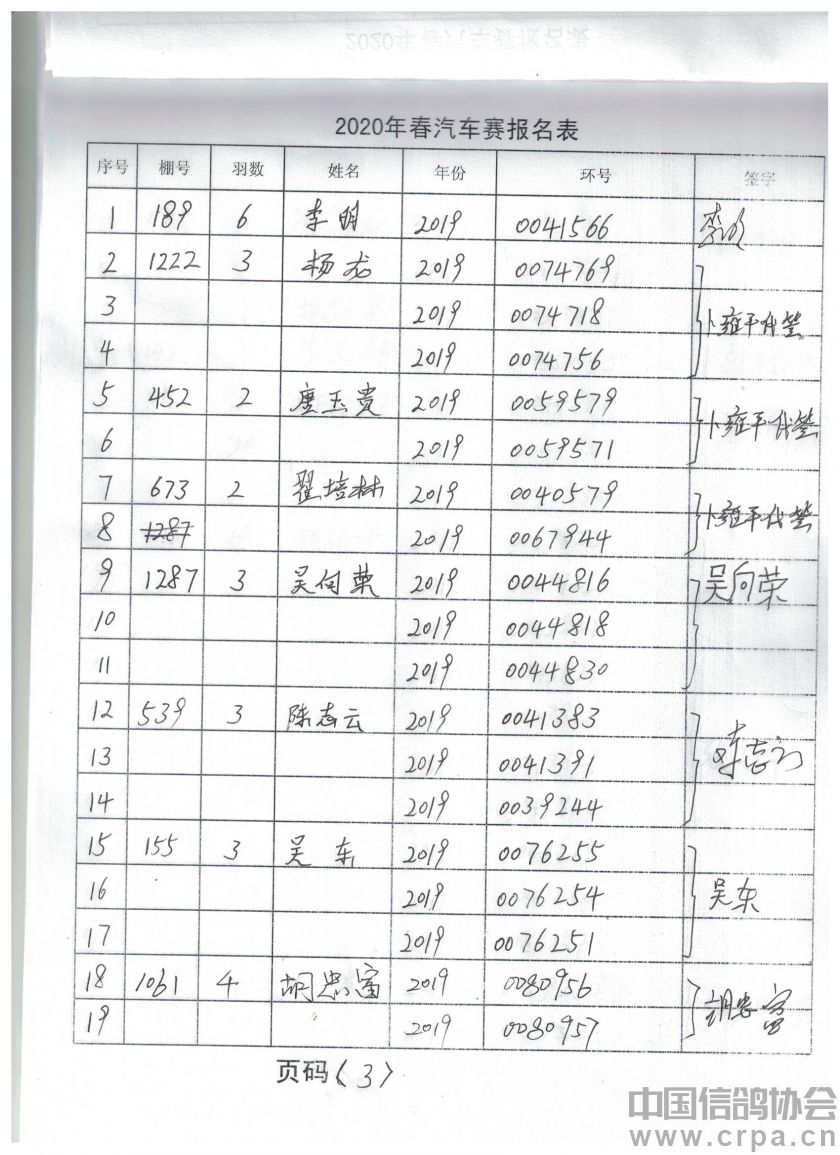 2020年春汽车赛报名表
序号 棚号 羽数 姓名 年份 环号 签字
1 189 6 李明 2019 0041566 李明
2 1222 3 杨龙 2019 0074769
3 2019 0074718 卜雍平代签
4 2019 0074756
5 452 2 唐玉贵 2019 0059579 卜雍平代签
6 2019 0059571
7 673 2 翟培林 2019 0040579 卜雍平代签
8 1287 2019 0067944
9 1287 3 吴向荣 2019 0044816 吴向荣
10 2019 0044818
11 2019 0044830
12 539 3 陈志云 2019 0041383
13 2019 0041391 陈志云
14 2019 0039244
15 155 3 吴东 2019 0076255
16 2019 0076254 吴东
17 2019 0076251
18 1061 4 胡忠富 2019 0080956 胡忠富
19 2019 0080957
页码(3)
中国信鸽协会
www.crpa.cn